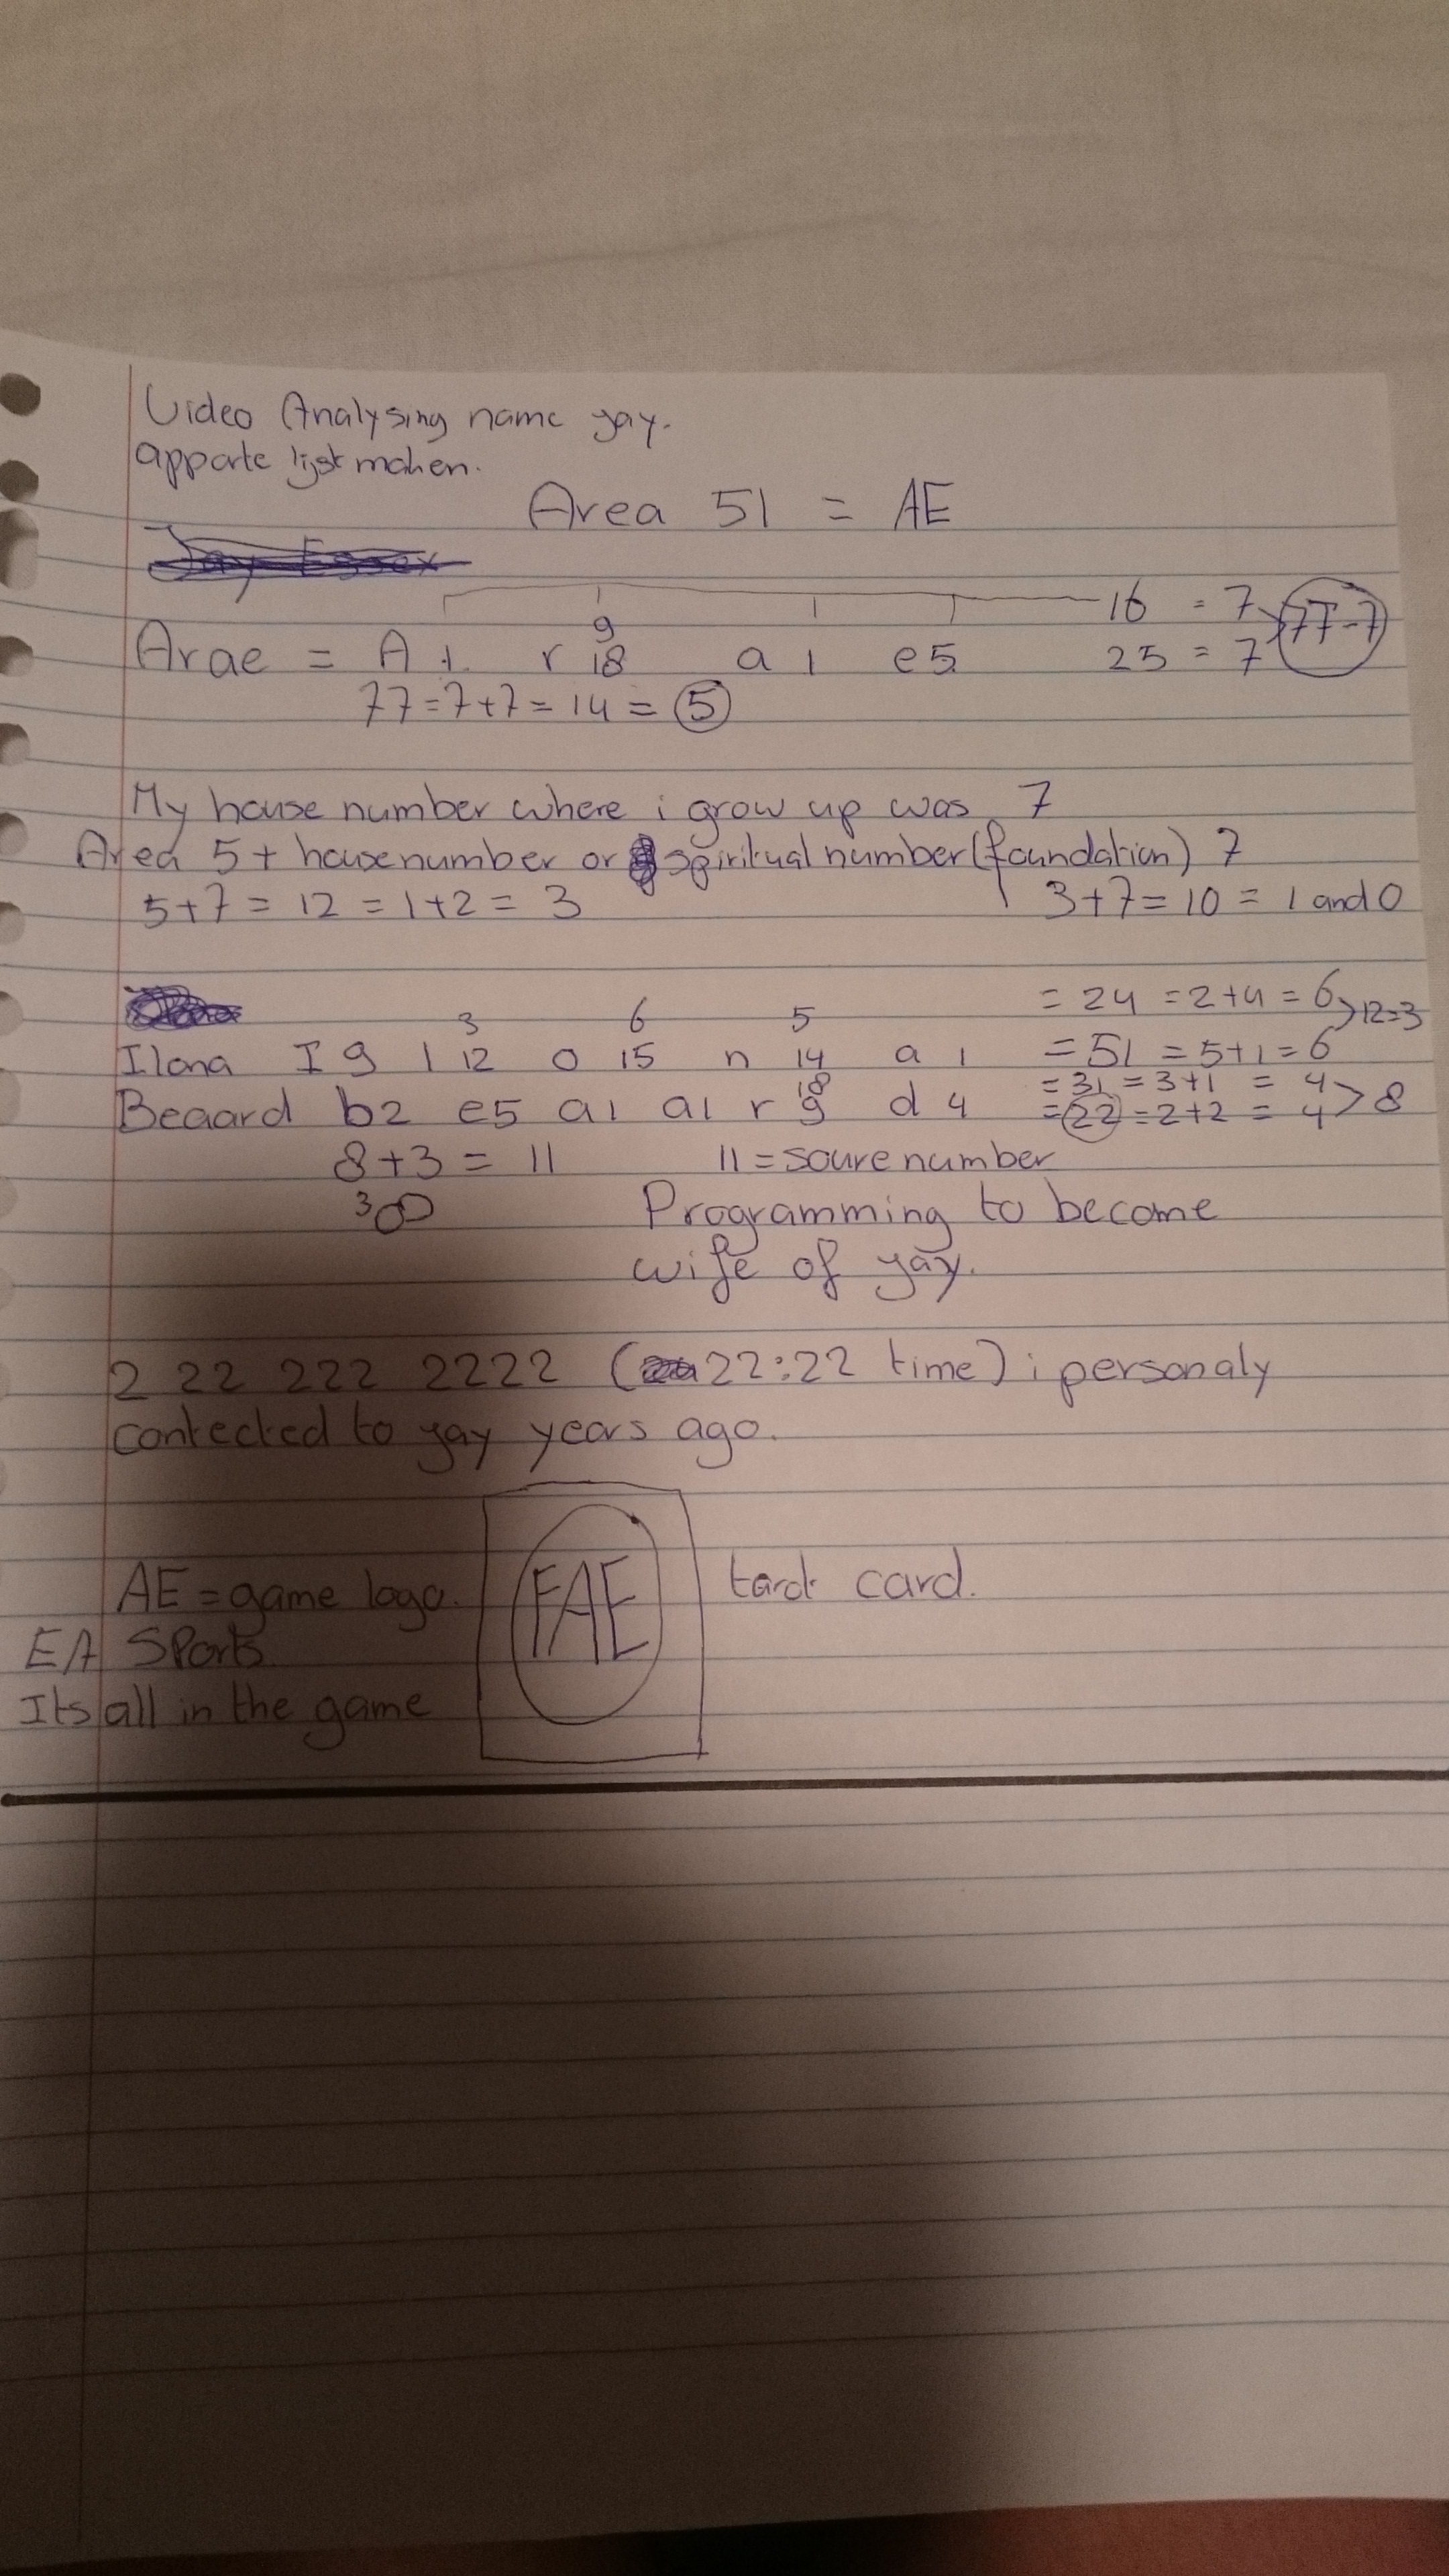 Video Analysing name yay.
apparte lijst maken.
Area 51 = AE
16 = 7
9
77-7
Arae = A 1 r 18 a 1 e5 25 = 7
77=7+7=14=5
My house number where i grow up was 7
Area 5+ housenumber or spiritual number (foundation) 7
5+7=12=1+2=3 3+7=10=1 and 0
3 6 5 =24=2+4=6 >12=3
Ilona I 9 l 12 o 15 n 14 a 1 =51=5+1=6
18 =31=3+1=4 >8
Beaard b2 e5 a1 a1 r 9 d 4 =22=2+2=4
8+3=11 11=soure number
3 ∞ Programming to become
wife of yay.
2 22 222 2222 (22:22 time) i personaly
contected to yay years ago.
AE=game logo. FAE card.
EA Sports
Its all in the game